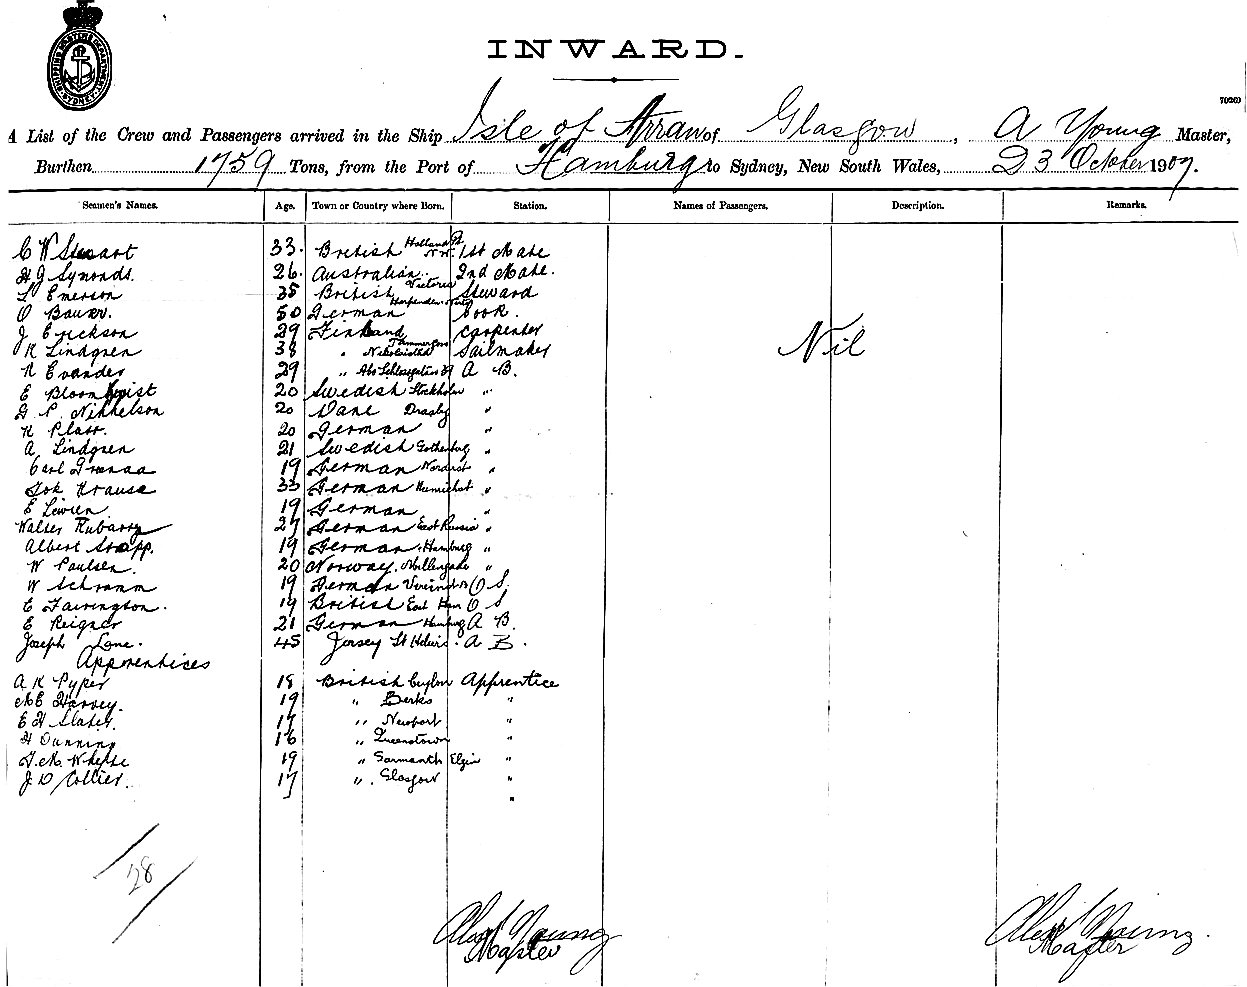 SHIPPING MASTERS DEPARTMENT SYDNEY
INWARD.
70260
A List of the Crew and Passengers arrived in the Ship Isle of Arran of Glasgow, A Young Master,
Burthen 1759 Tons, from the Port of Hamburg to Sydney, New South Wales, 23 October 1907.
Seamen's Names. Age. Town or Country where Born. Station. Names of Passengers. Description. Remarks.
C W Stewart 33. British Holland 1st Mate
H J Symonds 26. Australian Victoria 2nd Mate.
Emerson 35 British Steward
O Bauer. 50 German Cook.
J Erickson 29 Finland Carpenter
K Lindgren 38 " Sailmaker Nil
Evander 29 " A B.
E Bloomkvist 20 Swedish Stockholm "
P. Nikkelson 20 Dane "
K Plass. 20 German "
A Lindgren 21 Swedish Gothenburg "
Carl 19 German "
Krause 33 German "
E Lewien 19 German "
Walter 27 German East Russia "
Albert 19 German Hamburg "
W Paulsen. 20 Norway. "
W Schramm 19 German O S.
E Fairington. 19 British East Ham O S
E Reigner 21 German Hamburg A B.
Joseph Lane. 45 Jersey St Heliers. A B.
Apprentices
A K Pyper 18 British Ceylon Apprentice
Harvey. 19 " Berks "
E H Slater. 17 " Newport "
H Dunning 16 " Queenstown "
Whyte 19 " Garmouth Elgin "
J D Collier. 17 " Glasgow "
"
28
Alex Young Alex Young.
Master Master